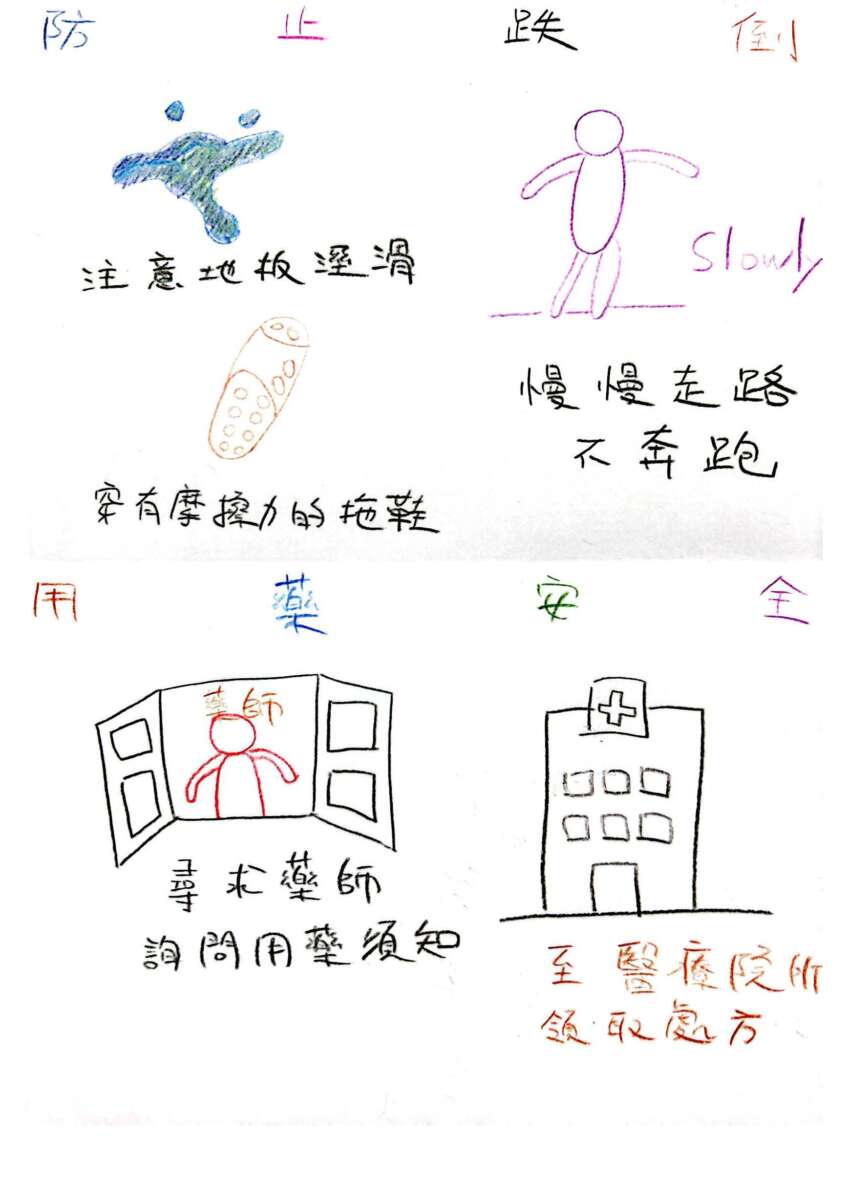 防止跌倒
注意地板溼滑
穿有摩擦力的拖鞋
Slowly
慢慢走路
不奔跑
用藥安全
藥師
尋求藥師
詢問用藥須知
至醫療院所
領取處方